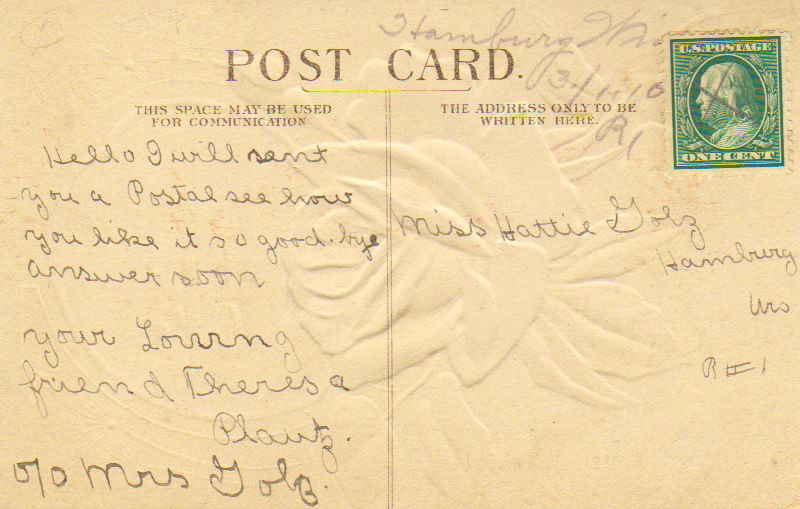 Hamburg Wis
3/11 10
R1
U.S. POSTAGE
ONE CENT
POST CARD.
THIS SPACE MAY BE USED
FOR COMMUNICATION.
THE ADDRESS ONLY TO BE
WRITTEN HERE.
Hello I will sent
you a Postal see how
you like it so good-bye
answer soon
your Loving
friend Theresa
Plautz.
c/o Mrs Golz.
Miss Hattie Golz
Hamburg
Wis
R#1